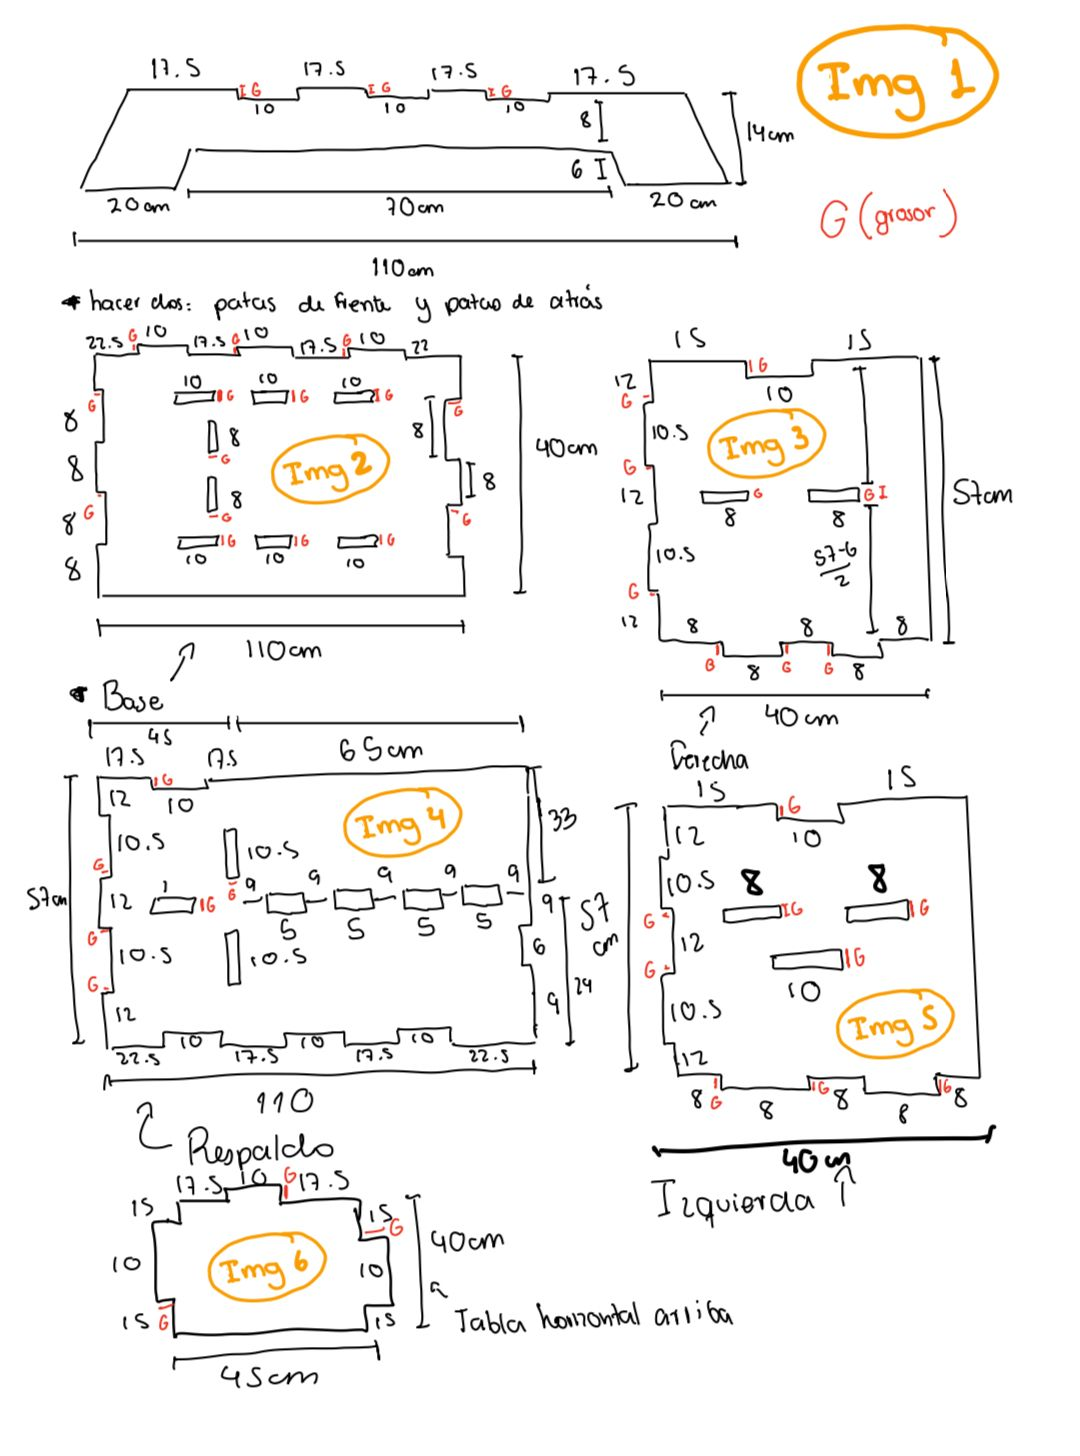 Img 1
17.5 17.5 17.5 17.5
I G I G I G
10 10 10
8
14cm
6
20cm 70cm 20cm
G (grosor)
110cm
* hacer dos: patas de frente y patas de atrás
22.5 G 10 17.5 G 10 17.5 G 10 22
10 10 10
G G G G
8 8 8
G
8 8 8
Img 2
40cm
8 G G G
G
8
G G G
10 10 10
110cm
* Base
15 15
G
12 10
G
10.5
Img 3
G
12 G G
8 8
57cm
10.5 57-6
2
G
12 8 8 8
G G G
8 8
40cm
Derecha
45 65cm
17.5 17.5
G
12 10
Img 4
33
10.5 10.5
G
G
9 9 9 9 9
57cm 12 1 G
6 5 5 5
9
G
10.5 10.5
6
57
cm
24
G
12 9
10 10 10
22.5 17.5 17.5 22.5
110
Respaldo
15 15
G
12 10
10.5 8 8
G G G
12
G G
10
10.5
Img 5
12
8 G 8 G 8 8 G 8
40cm
Izquierda
17.5 10 G 17.5
15 15 G
40cm
10 Img 6 10
15 G 15
Tabla horizontal arriba
45cm